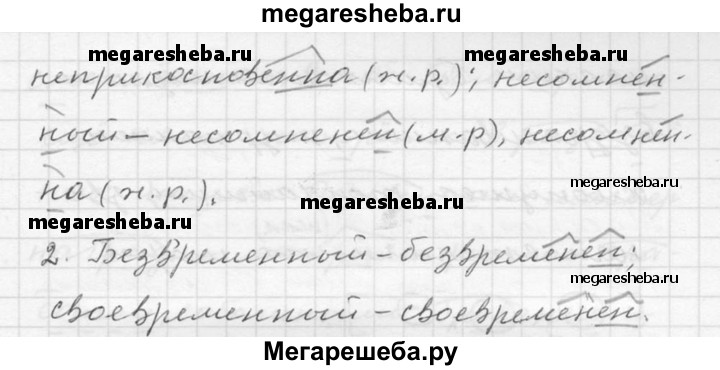 megaresheba.ru
megaresheba.ru megaresheba.ru
неприкосновенна (ж.р.); несомнен-
ный – несомненен (м.р), несомнен-
на (ж.р.).
megaresheba.ru
megaresheba.ru
megaresheba.ru
2. Безвременный – безвременен;
megaresheba.ru
своевременный – своевременен.
Мегарешеба.ру